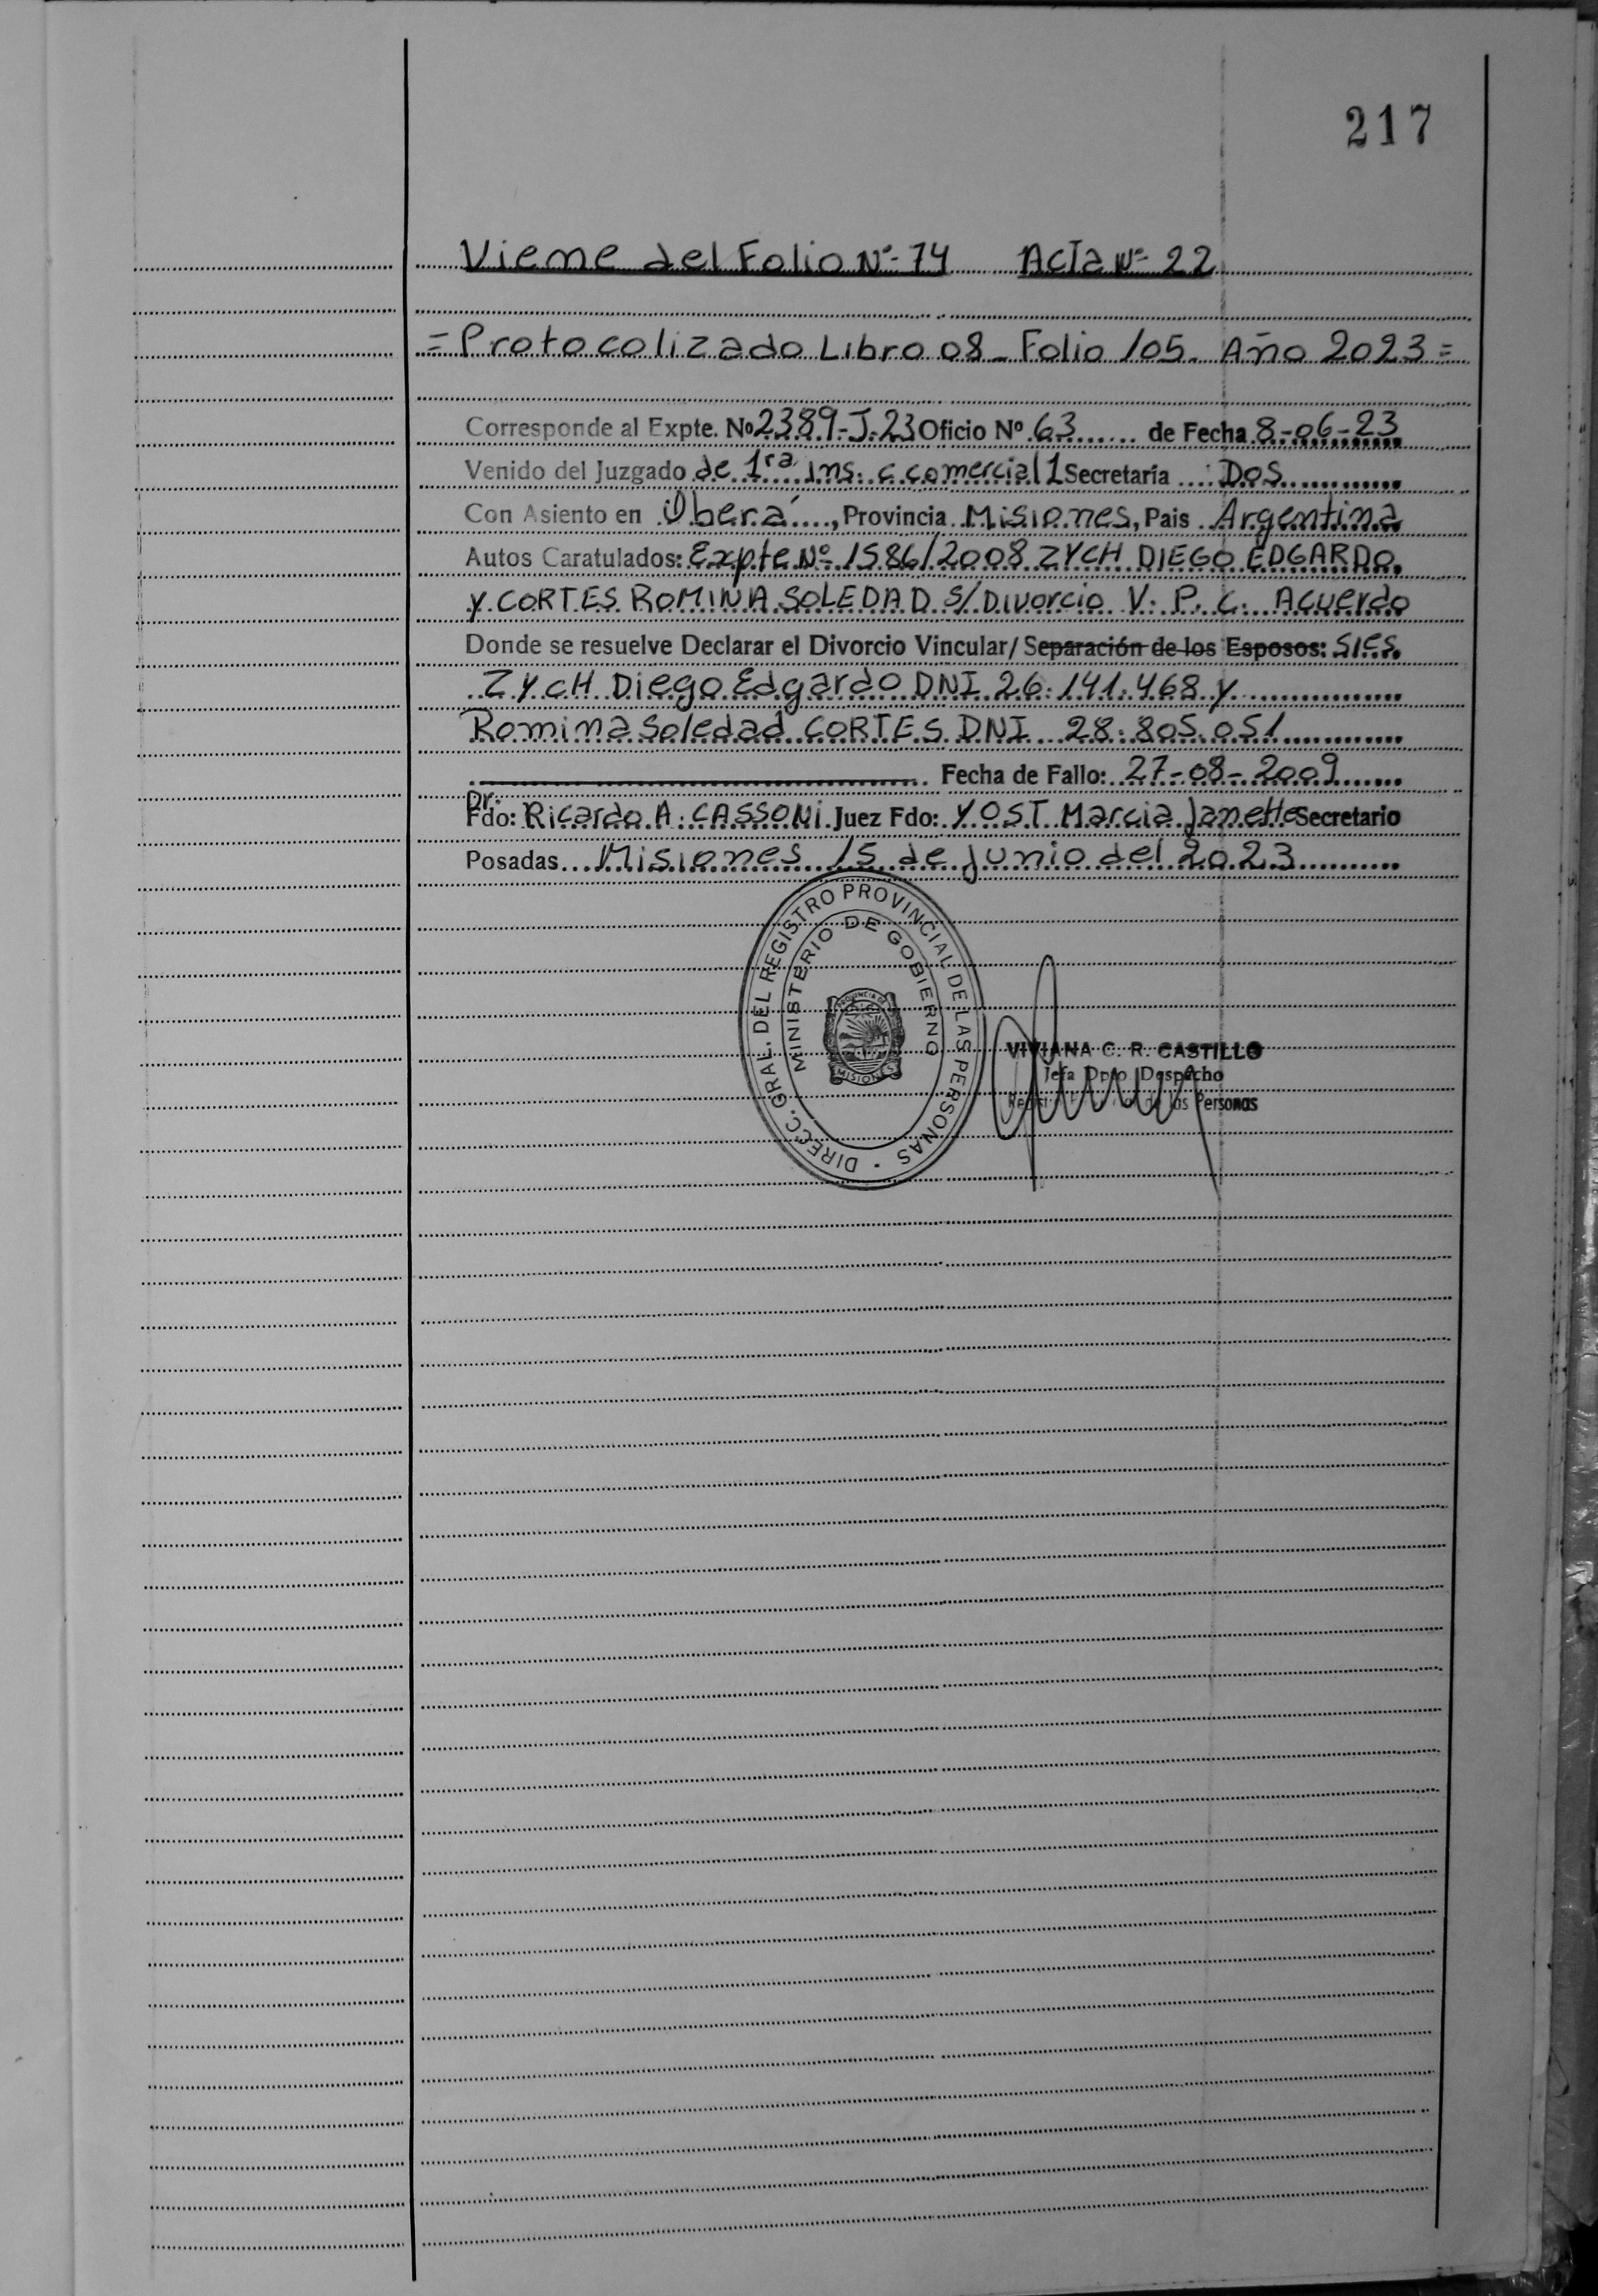 217
Viene del Folio Nº- 74 Acta Nº- 22
= Protocolizado Libro 08 - Folio 105 - Año 2023 =
Corresponde al Expte. Nº 2389-J-23 Oficio Nº 63 ...... de Fecha 8-06-23
Venido del Juzgado de 1ra ins. c.comercial 1 Secretaria .... Dos
Con Asiento en Oberá ...., Provincia Misiones, Pais Argentina
Autos Caratulados: Expte Nº 1586/2008 ZYCH DIEGO EDGARDO
y CORTES ROMINA SOLEDAD S/Divorcio V. P. C. Acuerdo
Donde se resuelve Declarar el Divorcio Vincular/ Separación de los Esposos: Sres.
ZYCH Diego Edgardo DNI 26.141.468 y
Romina Soledad CORTES DNI 28.805.051
Fecha de Fallo: 27-08-2009
Dr.
Fdo: Ricardo A. CASSONI Juez Fdo: YOST Marcia Janette Secretario
Posadas ... Misiones 15 de junio del 2023
DIRECC. GRAL. DEL REGISTRO PROVINCIAL DE LAS PERSONAS
MINISTERIO DE GOBIERNO
PROVINCIA DE
MISIONES
VIVIANA C. R. CASTILLO
Jefa Dpto Despacho
de las Personas